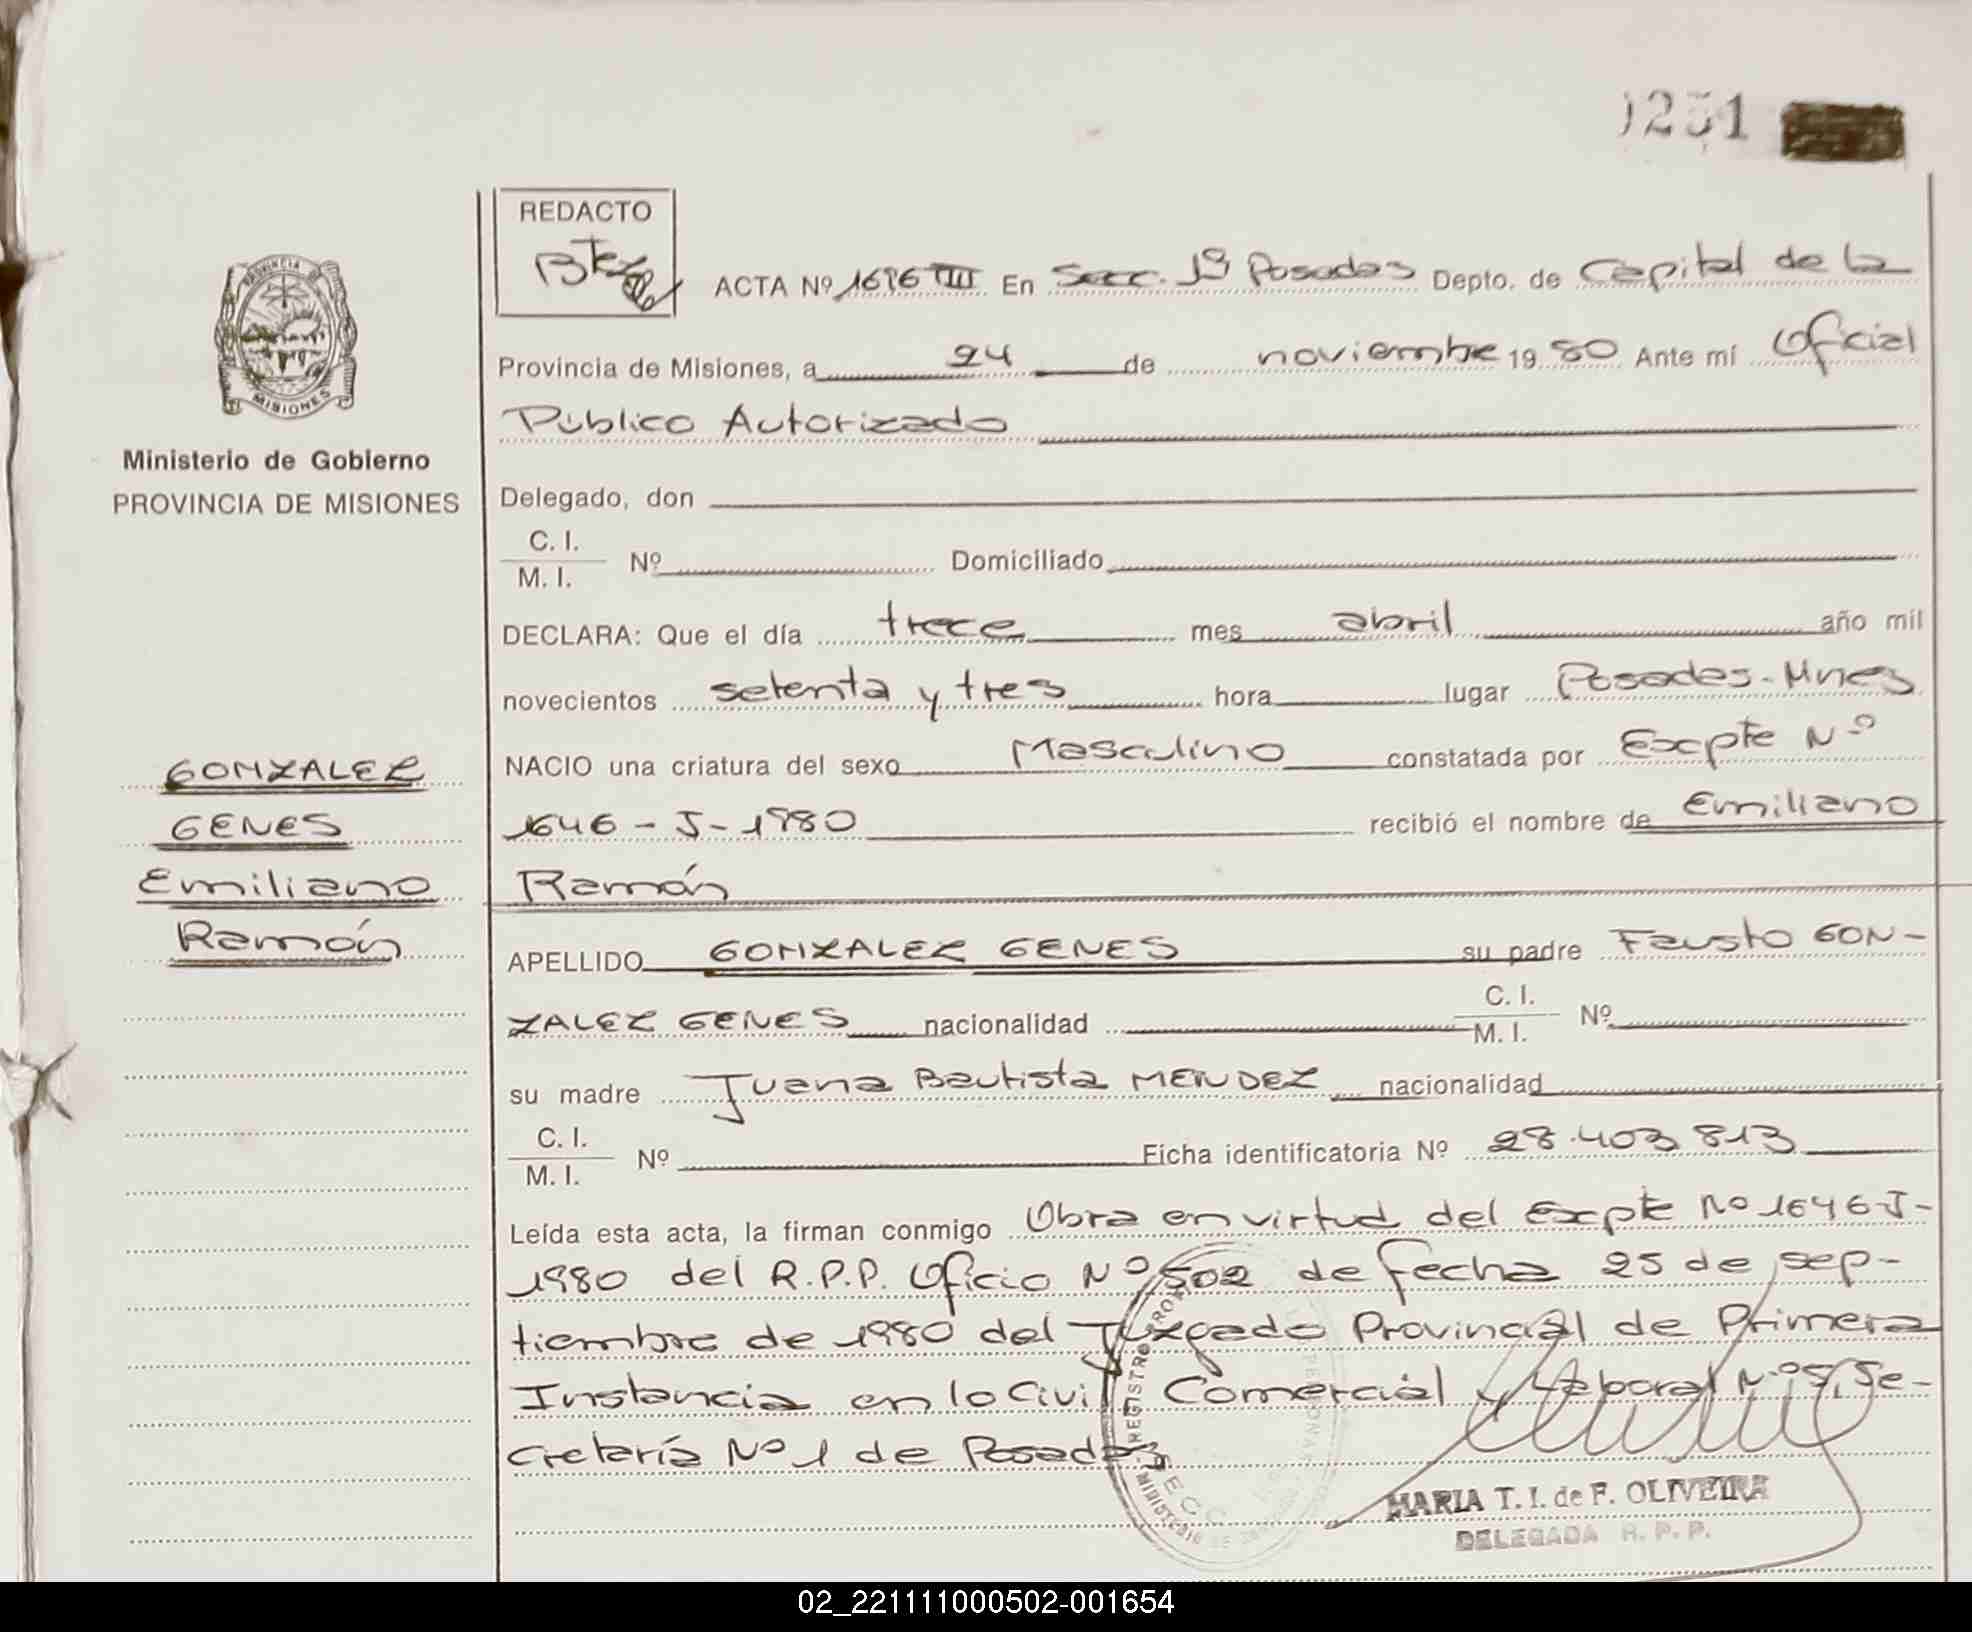 0251
REDACTO
ACTA Nº 1696 TIII En Secc. 1ª Posadas Depto. de Capital de la
Provincia de Misiones, a 24 de noviembre 1980 Ante mí Oficial
Público Autorizado
Ministerio de Gobierno
PROVINCIA DE MISIONES
Delegado, don
C. I.
M. I. Nº Domiciliado
DECLARA: Que el día trece mes abril año mil
novecientos setenta y tres hora lugar Posadas-Mnes
GONZALEZ
GENES
Emiliano
Ramón
NACIO una criatura del sexo Masculino constatada por Expte Nº
1646-J-1980 recibió el nombre de Emiliano
Ramón
APELLIDO GONZALEZ GENES su padre Fausto GON-
ZALEZ GENES nacionalidad C. I. M. I. Nº
su madre Juana Bautista MENDEZ nacionalidad
C. I.
M. I. Nº Ficha identificatoria Nº 28.403.813
Leída esta acta, la firman conmigo Obra en virtud del Expte Nº 1646-J-
1980 del R.P.P. Oficio Nº 502 de fecha 25 de sep-
tiembre de 1980 del Juzgado Provincial de Primera
Instancia en lo Civil Comercial y Laboral Nº 5, Se-
cretaría Nº 1 de Posadas
MARIA T. I. de F. OLIVEIRA
DELEGADA R. P. P.
02_221111000502-001654